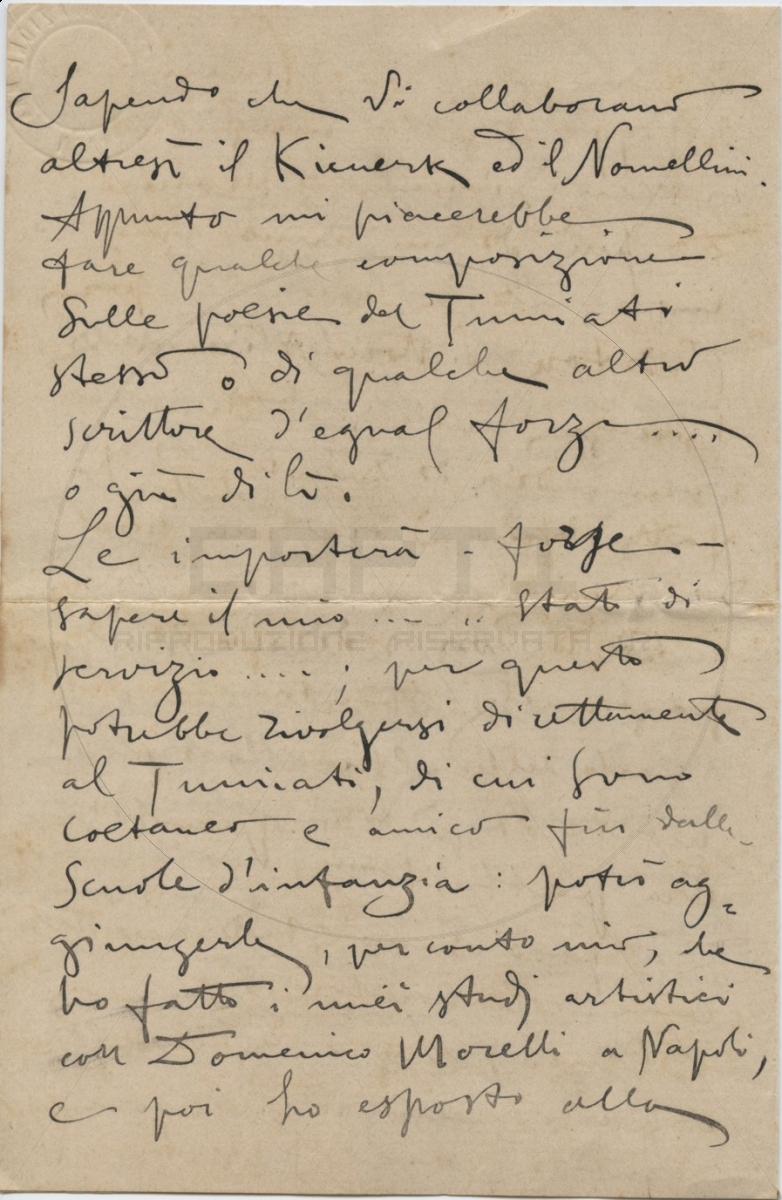 Sapendo che vi collaborano
altresì il Kienerk ed il Nomellini.
Appunto mi piacerebbe
fare qualche composizione
sulle poesie del Tumiati
stesso o di qualche altro
scrittore d'egual forza....
o giù di lì.
Le importerà - forse -
sapere il mio ... .. stato di
servizio .... ; per questo
potrebbe rivolgersi direttamente
al Tumiati, di cui sono
coetaneo e amico fin dalle
scuole d'infanzia : potrò ag=
giungerle, per conto mio, che
ho fatto i miei studj artistici
con Domenico Morelli a Napoli,
e poi ho esposto alla
RIPRODUZIONE RISERVATA